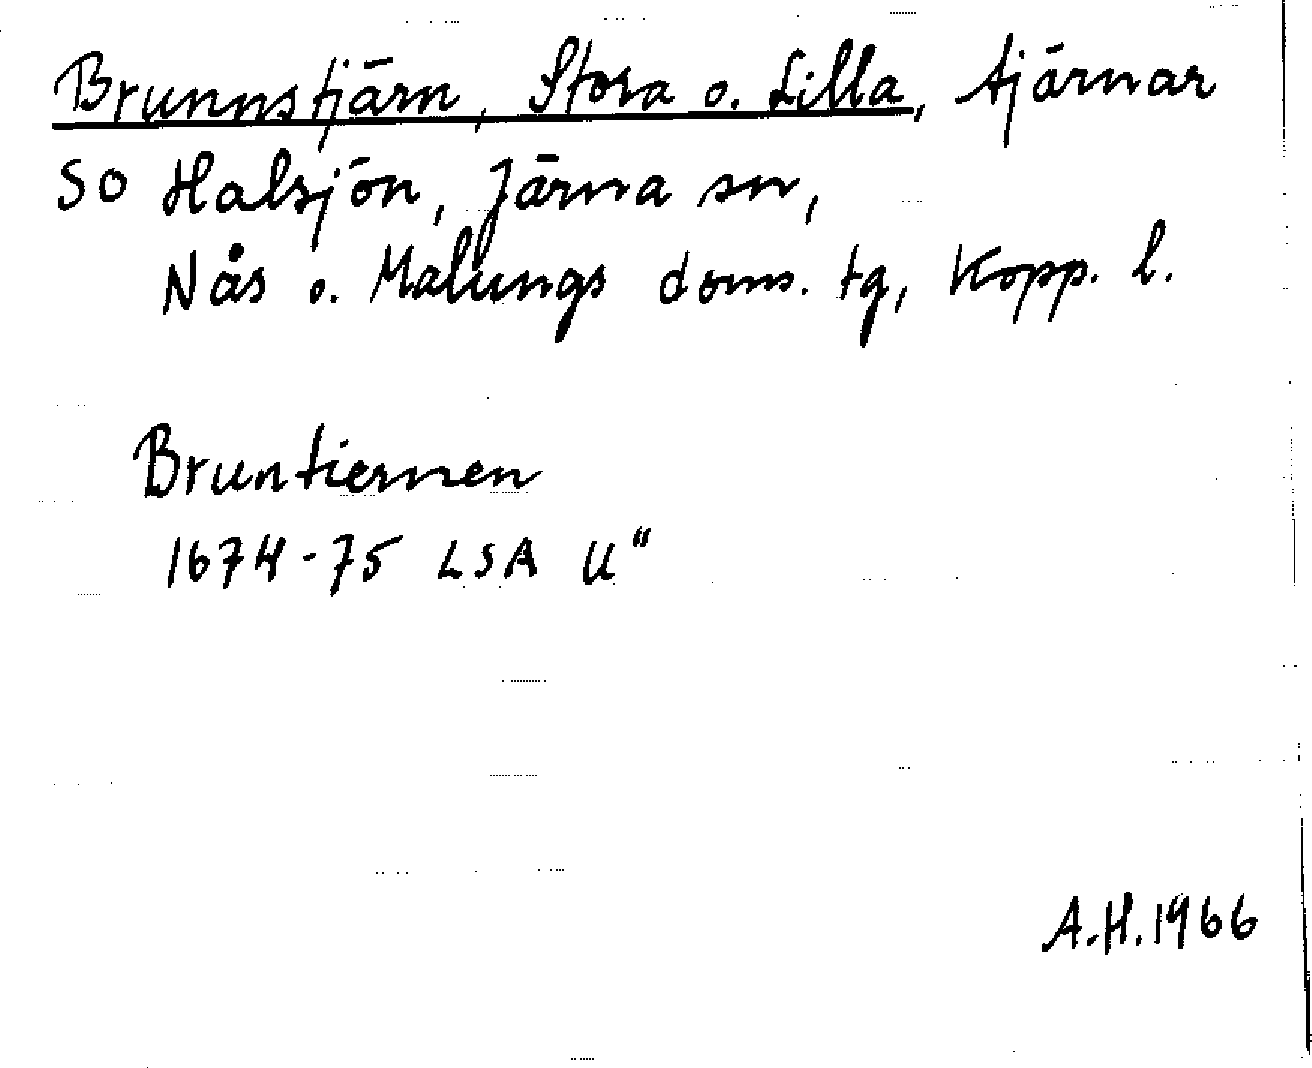 Brunnstjärn, Stora o. Lilla, tjärnar
SO Halsjön, Järna sn,
Nås o. Malungs doms. tg, Kopp. l.
Bruntiernen
1674-75 LSA U"
A.H. 1966